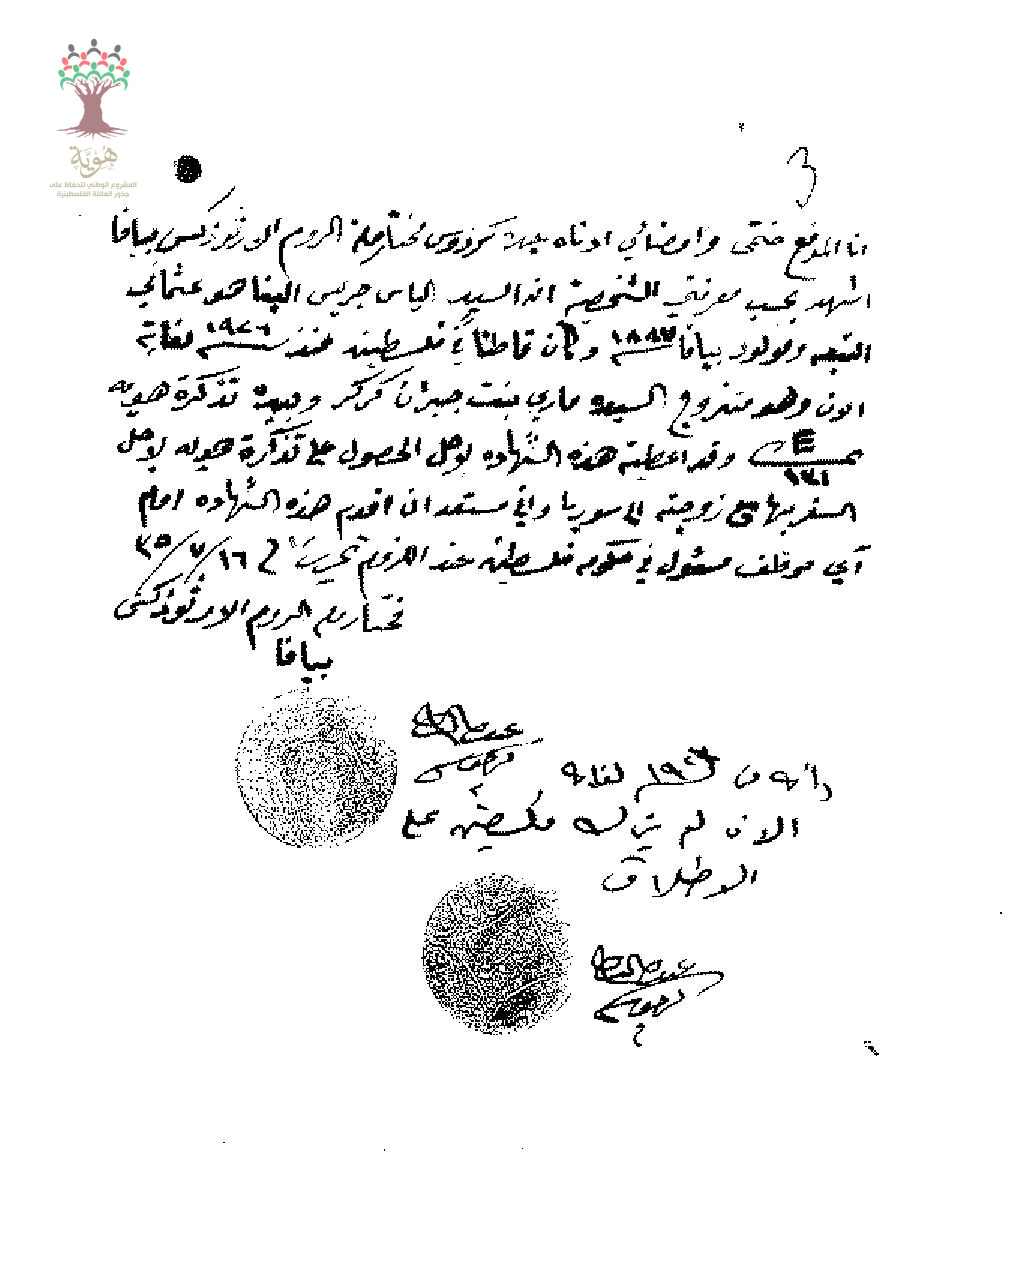 هُوِيَّة
المشروع الوطني للحفاظ على
جذور العائلة الفلسطينية
3
انا الموقع ختمي وامضائي ادناه مختار ملة الروم الارثوذكس بيافا
اشهد بحسب معرفتي الشخصية ان السيد الياس جريس البنا هو عثماني
التبعه ومولود بيافا ١٨٨٧ وكان قاطنا في فلسطين منذ سنة ١٩٢٦ لغاية
الان وهو متزوج السيده ماري بنت جبران كركر وبيده تذكرة هويه
E
١٢١
وقد اعطيته هذه الشهاده لاجل الحصول على تذكرة هويه لاجل
السفر بها مع زوجته الى سوريا واني مستعد ان اقدم هذه الشهاده امام
أي موظف مسؤول في حكومة فلسطين عند اللزوم تحريرا في ١٦/٧/٣٥
مختار الروم الارثوذكس
بيافا
وانه من ١٩٢٠ لغاية
الان لم يترك فلسطين على
الاطلاق